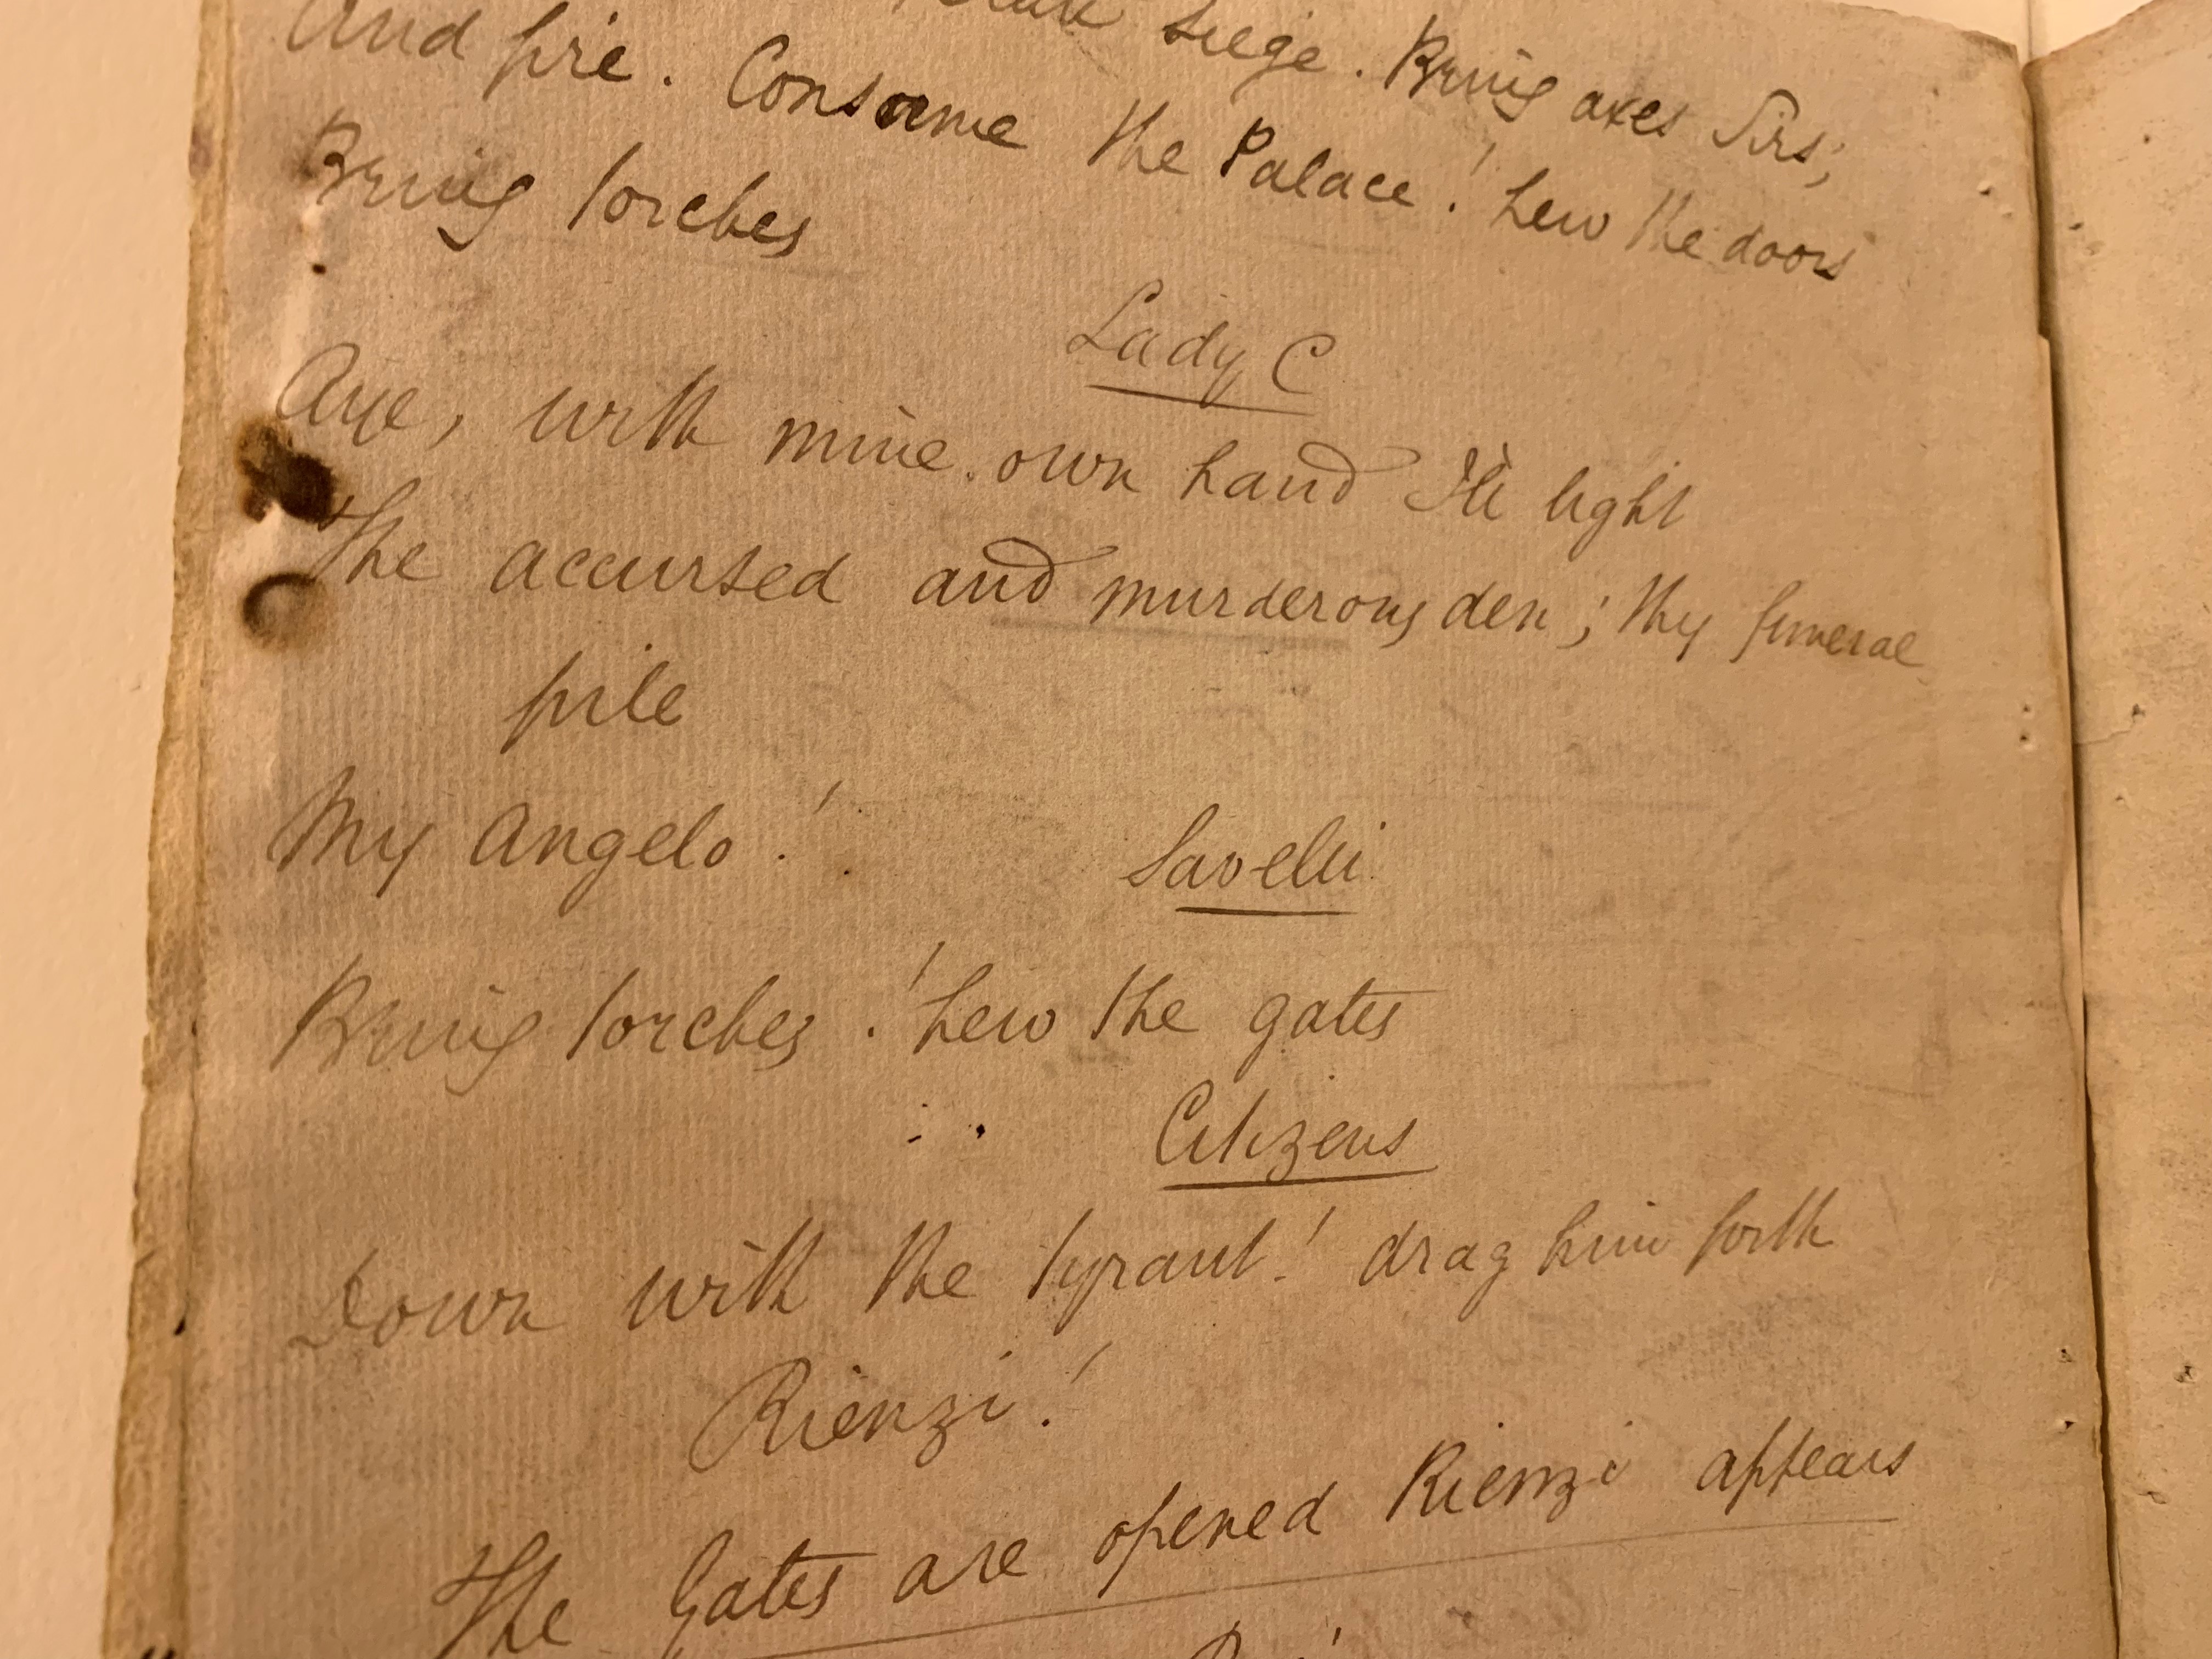 siege. Bring axes Sirs;
And fire. Consume the Palace! hew the doors
Bring torches
Lady C
Aye, with mine own hand I'll light
The accursed and murderous den; thy funeral
pile
My Angelo!
Savelli
Bring torches! hew the gates
Citizens
Down with the tyrant! drag him forth
Rienzi!
The Gates are opened Rienzi appears